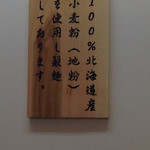 100%北海道産
小麦粉(地粉)
を使用し製麺
しております。